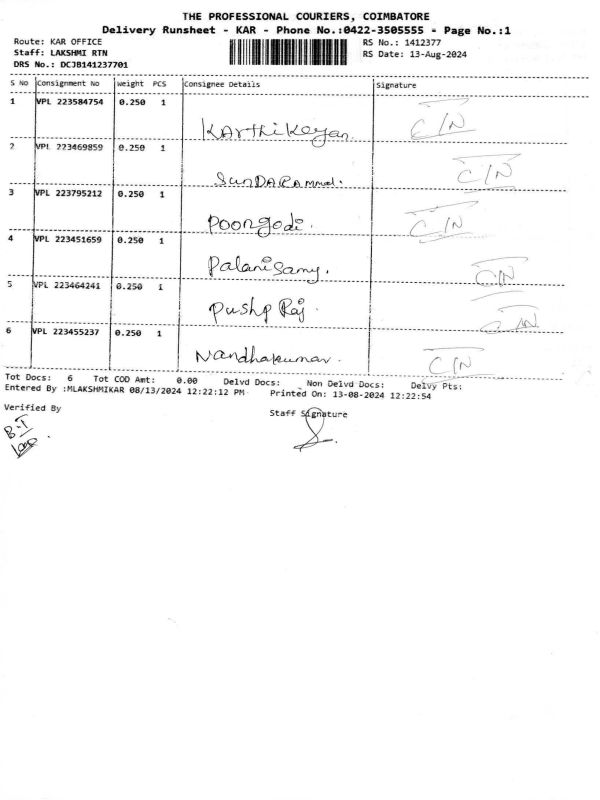 THE PROFESSIONAL COURIERS, COIMBATORE
Delivery Runsheet - KAR - Phone No.:0422-3505555 - Page No.:1
Route: KAR OFFICE RS No.: 1412377
Staff: LAKSHMI RTN RS Date: 13-Aug-2024
DRS No.: DCJB141237701
S No Consignment No Weight PCS Consignee Details Signature
1 VPL 223584754 0.250 1
Karthikeyan C/N
2 VPL 223469859 0.250 1
C/N
3 VPL 223795212 0.250 1
Poongodi. C/N
4 VPL 223451659 0.250 1
Palanisamy. C/N
5 VPL 223464241 0.250 1
Pushp Raj. C/N
6 VPL 223455237 0.250 1
Nandhakumar. C/N
Tot Docs: 6 Tot COD Amt: 0.00 Delvd Docs: Non Delvd Docs: Delvy Pts:
Entered By :MLAKSHMIKAR 08/13/2024 12:22:12 PM Printed On: 13-08-2024 12:22:54
Verified By Staff Signature